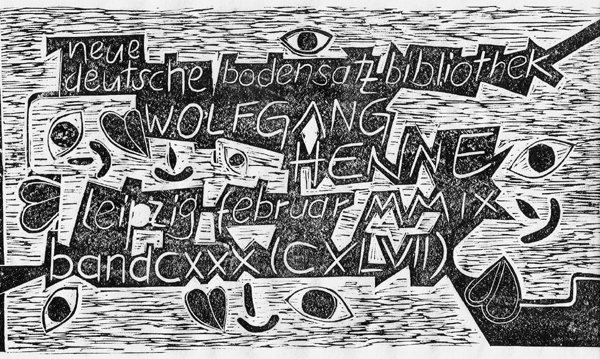 neue
deutsche bodensatz bibliothek
WOLFGANG
HENNE
leipzig februar MMIX
band cxxx (CXLVII)